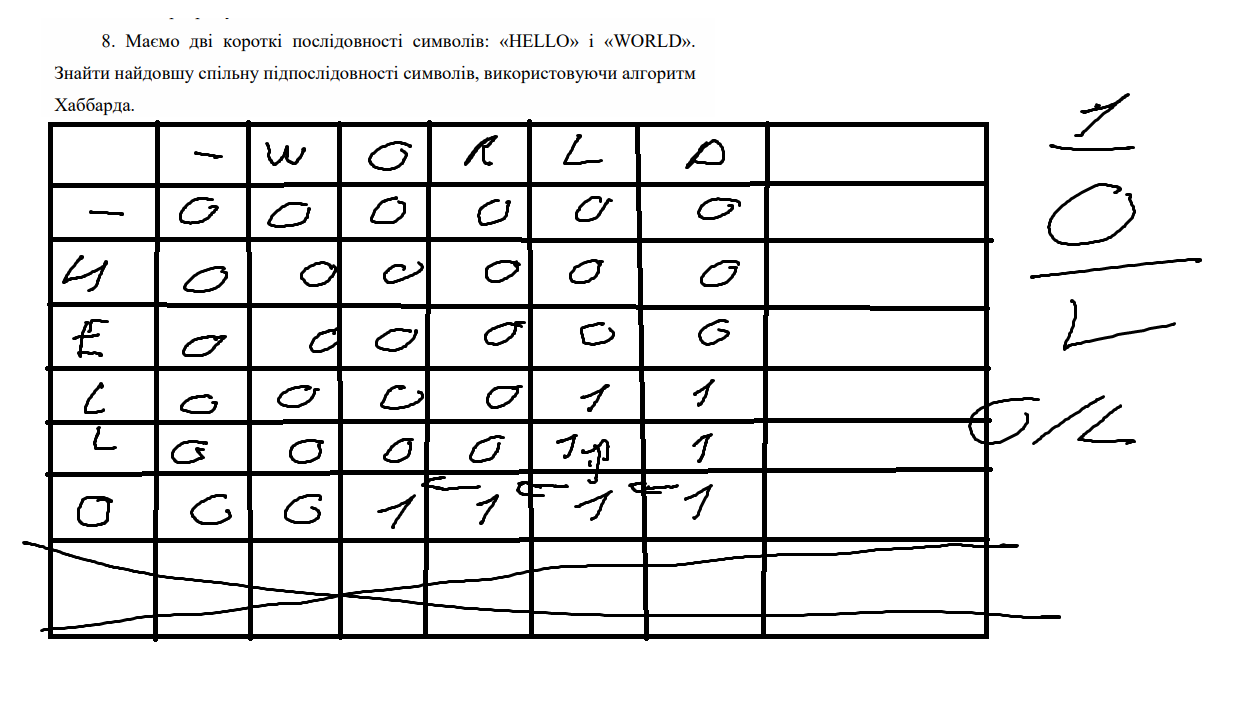 8. Маємо дві короткі послідовності символів: «HELLO» і «WORLD».
Знайти найдовшу спільну підпослідовності символів, використовуючи алгоритм
Хаббарда.
1
- W O R L D
- 0 0 0 0 0 0
O
H 0 0 0 0 0 0
L
E 0 0 0 0 0 0
L 0 0 0 0 1 1
O/L
L 0 0 0 0 1 1
O 0 0 1 1 1 1